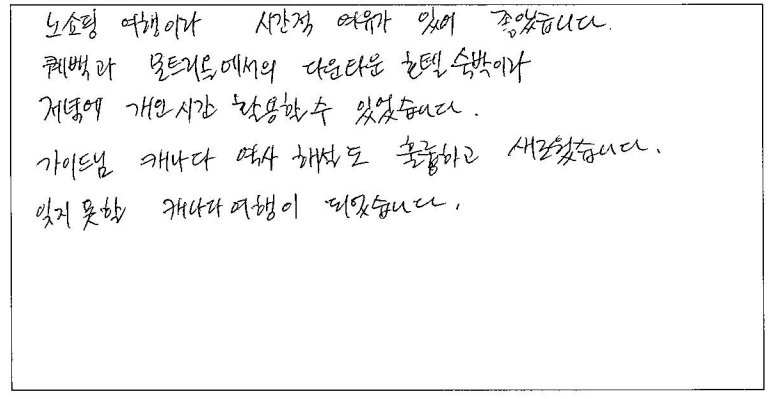 노쇼핑 여행이라 시간적 여유가 있어 좋았습니다.
퀘백과 몬트리올에서의 다운타운 호텔 숙박이라
저녁에 개인시간 활용할 수 있었습니다.
가이드님 캐나다 역사 해설도 훌륭하고 새로웠습니다.
잊지 못할 캐나다 여행이 되었습니다.